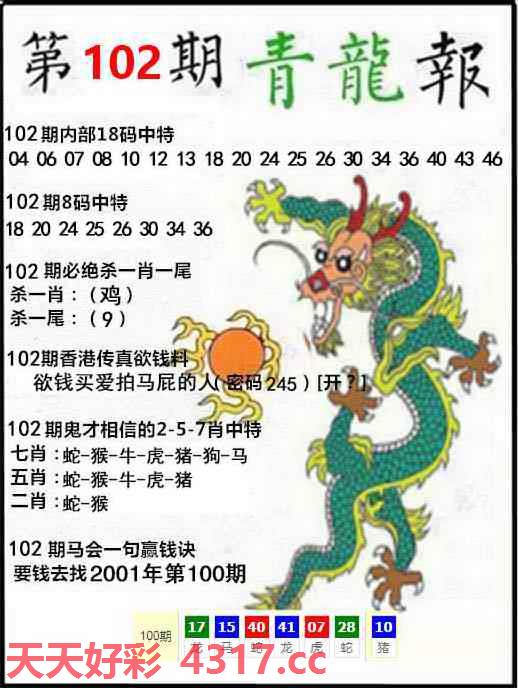 第102期青龍報
102期内部18码中特
04 06 07 08 10 12 13 18 20 24 25 26 30 34 36 40 43 46
102期8码中特
18 20 24 25 26 30 34 36
102期必绝杀一肖一尾
杀一肖：（鸡）
杀一尾：（9）
102期香港传真欲钱料
欲钱买爱拍马屁的人（密码245）[开？]
102期鬼才相信的2-5-7肖中特
七肖：蛇-猴-牛-虎-猪-狗-马
五肖：蛇-猴-牛-虎-猪
二肖：蛇-猴
102期马会一句赢钱诀
要钱去找2001年第100期
100期 17 15 40 41 07 28 10
龙 马 蛇 龙 虎 蛇 猪
天天好彩 4317.cc